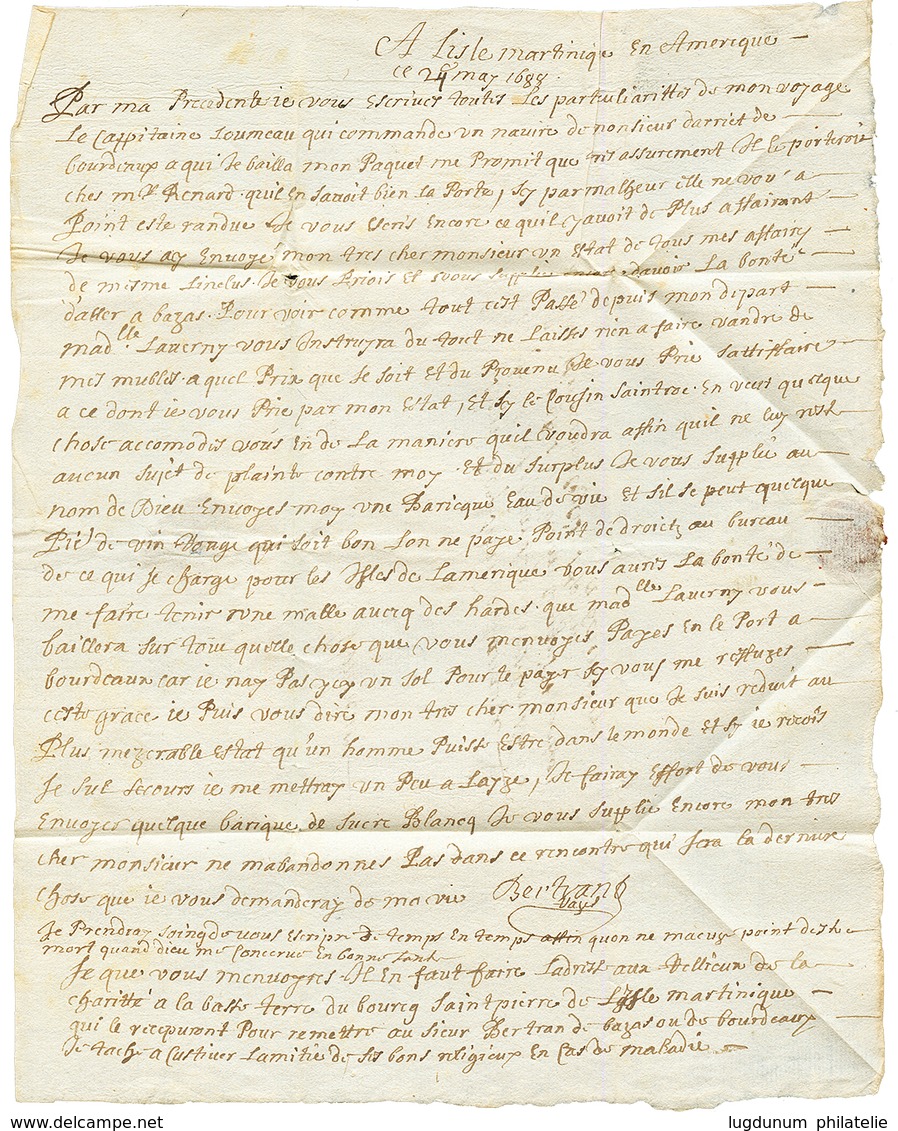 A Lisle martiniqe En Amerique
ce 24 may 1688
Par ma Precedente ie vous Escrives toutes Les partuliarittes de mon voyage
Le Cappitaine Joumeau qui commande un navire de monsieur darriet de
bourdeaux a qui Je bailla mon Paquet me Promit que tres assurement Il le porteroit
ches mr Renard quil En savoit bien la Porte, sy par malheur elle ne vou a
Point este randue Je vous Escris Encore ce quil y avoit de Plus affairant
Je vous ay Envoyé mon tres cher monsieur un Estat de tous mes affaires
de mesme Linclus Je vous Priois Et vous supplie encore davoir La bonté
d'aller a bazas Pour voir comme tout cest Passé depuis mon depart
mad.lle Laverny vous Instruyra du tout ne Laisses rien a faire vandre de
mes mubles a quel Prix que se soit Et du Provenu Je vous Prie sattiffaire
a ce dont ie vous Prie par mon Estat, Et sy le Cousin Saintroc En veut quelque
chose accomodes vous En de La maniere quil voudra affin quil ne luy reste
aucun sujet de plainte contre moy Et du surplus Je vous supplie au
nom de Dieu Envoyes moy une Baricque Eau de vie Et sil se peut quelque
Pié de vin Rouge qui soit bon Lon ne paye Point de droictz au bureau
de ce qui se charge pour les Isles de Lamerique vous aures La bonté de
me faire tenir une malle avecq des hardes que madlle Laverny vous
baillera sur toute quelle chose que vous menvoyes Payes En le Port a
bourdeaux car ie nay Pas ycy un sol Pour le payer sy vous me reffuzes
ceste grace ie Puis vous dire mon tres cher monsieur que Je suis reduit au
Plus mezerable Estat qu'un homme Puisse Estre dans le monde Et sy ie recois
se sul secours ie me mettray un Peu a Layze, Je fairay Effort de vous
Envoyer quelque barique de sucre Blancq Je vous supplie Encore mon tres
cher monsieur ne mabandonnes Pas dans ce rencontre qui sera la derniere
chose que ie vous demanderay de ma vie Bertrand
Je Prendray soing de vous Escripre de temps En temps affin quon ne macuze point destre
mort quand dieu me Concerve En bonne sante
se que vous menvoyres Il En faut faire Ladresse aux Relligeux de la
charitté a la basse terre du bourcq Saintpierre de Lysle martinique
qui le recepvront Pour remettre au sieur Bertran de bazas ou de bourdeaux
Je tache a Custiver Lamitie de ses bons religieux En Cas de maladie
https://www.delcampe.net
lugdunum philatelie